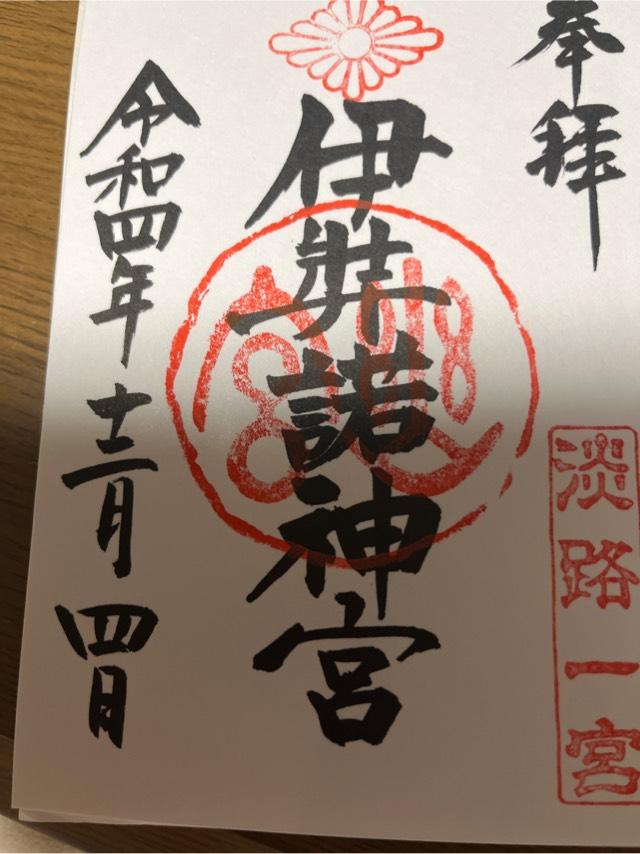 奉拝
淡路一宮
伊弉諾神宮
令和四年十二月四日